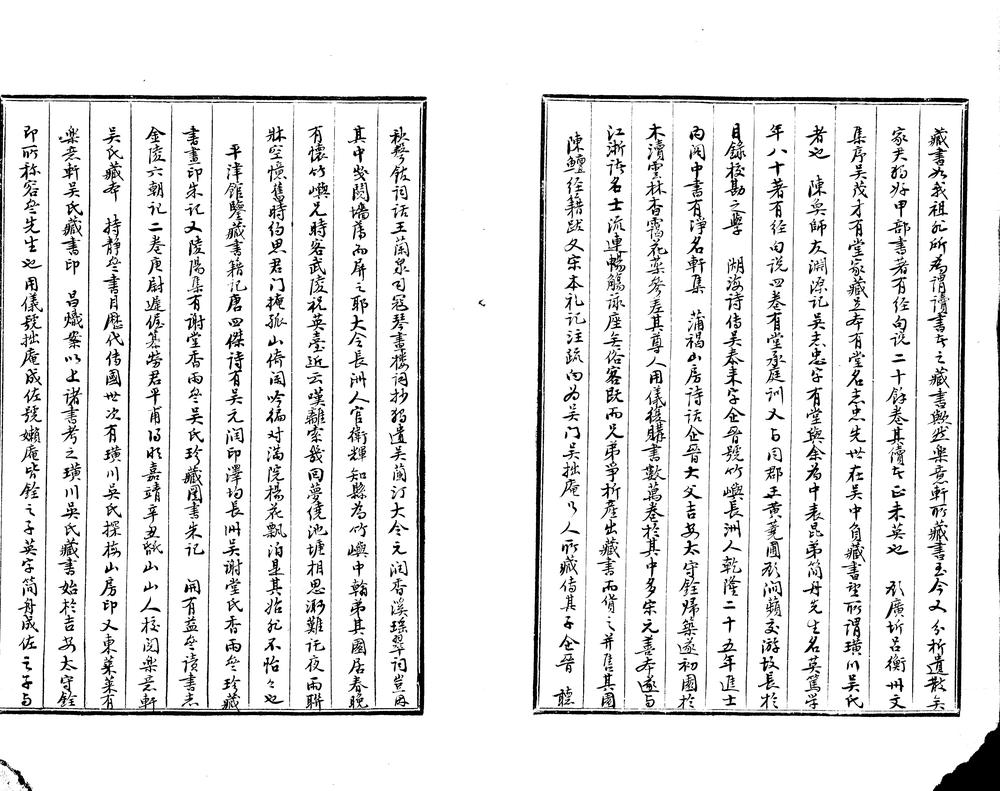 藏書為我祖於所為謂讀書者之藏書歟然樂意軒所藏書至今又分析遺散矣
家夫翁好甲部書著有經句說二十餘卷其續本正未英也　顧廣圻呂衡州文
集序吳茂才有堂家藏是本有堂名志忠先世在吳中負藏書望所謂璜川吳氏
者也　陳奐師友淵源記吳志忠字有堂與余為中表昆弟簡舟先生名英篤學
年八十著有經句說四卷有堂承庭訓又与同郡王黃蕘圃顧澗蘋交游故長於
目錄校勘之學　湖海詩傳吳泰來字企晉號竹嶼長洲人乾隆二十五年進士
內閣中書有淨名軒集　蒲褐山房詩話企晉大父吉安太守銓歸築遂初園於
木瀆雲林杳靄花藥參差其尊人用儀復購書數萬卷於其中多宋元善本遂与
江浙諸名士流連觴詠座無俗客既而兄弟爭析產出藏書而貨之并售其園
陳鱣經籍跋文宋本禮記注疏向為吳門吳拙庵　人所藏傳其子企晉　聽
秋聲館詞話王蘭泉司寇琴畫樓詞抄獨遺吳蘭汀大令元潤香溪瑤翠詞豈因
其中曾鬩墻薄而屏之耶大令長洲人官衛輝知縣為竹嶼中翰弟其國居春晚
有懷竹嶼兄時客武陵祝英臺近云嘆離索幾回夢繞池塘相思渺難託夜雨聯
牀空憶舊時約思君門掩孤山倚闌吟徧对滿院楊花飄泊是其始於不怡々也
平津館鑒藏書籍記唐四傑詩有吳元潤印澤均長洲吳謝堂氏香雨叁珍藏
書畫印朱記又陵陽集有謝堂香雨叁吳氏珍藏圖書朱記　開有益叁讀書志
金陵六朝記二卷唐尉遲偓纂勞君平甫得明嘉靖辛丑　山山人校閱樂意軒
吳氏藏本　持靜叁書目歷代傳國世次有璜川吳氏探梅山房印又東萊集有
樂意軒吳氏藏書印　昌熾案以上諸書考之璜川吳氏藏書始於吉安太守銓
即所称容叁先生也用儀號拙庵成佐號嬾庵皆銓之子英字簡舟成佐之子与